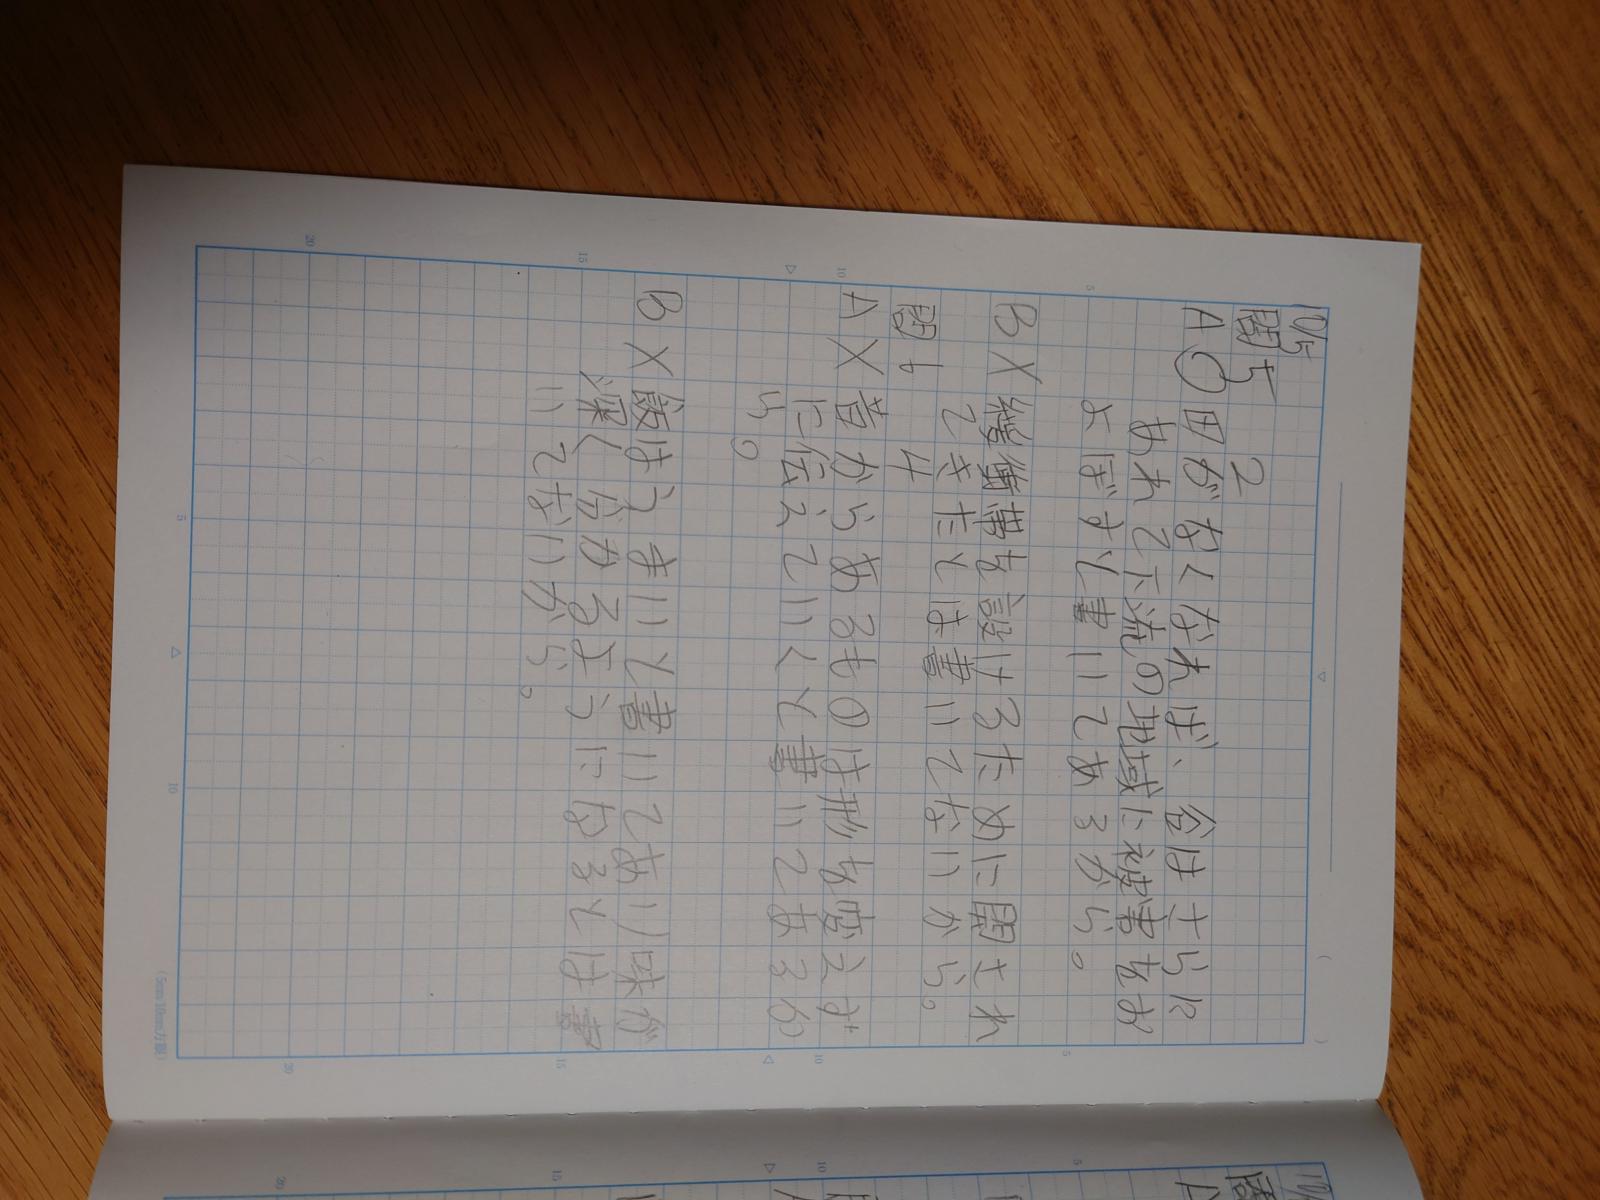 10/5
問五 2
A○田がなくなれば、谷はさらに
あれて下流の地域に被害をお
よぼすと書いてあるから。
B×緩衝帯を設けるために開され
てきたとは書いてないから。
問十 4
A×昔からあるものは形を変えず
に伝えていくと書いてあるか
ら。
B×飯はうまいと書いてあり味が
深く分かるようになるとは書
いてないから。
5
10
15
20
5
10
10
15
20
(5mm10mm方眼)
5
10
15
20